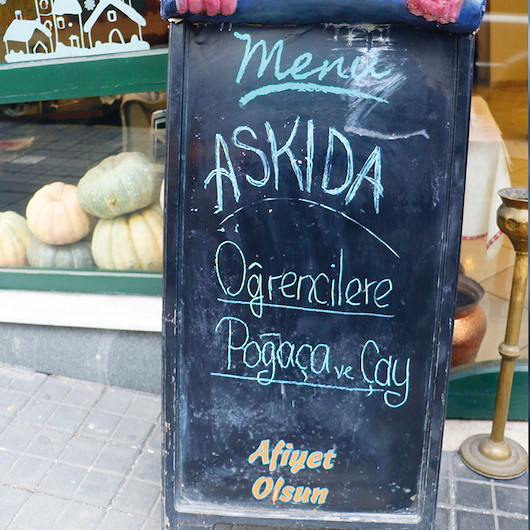 Menü
ASKIDA
Öğrencilere
Poğaça ve Çay
Afiyet
Olsun